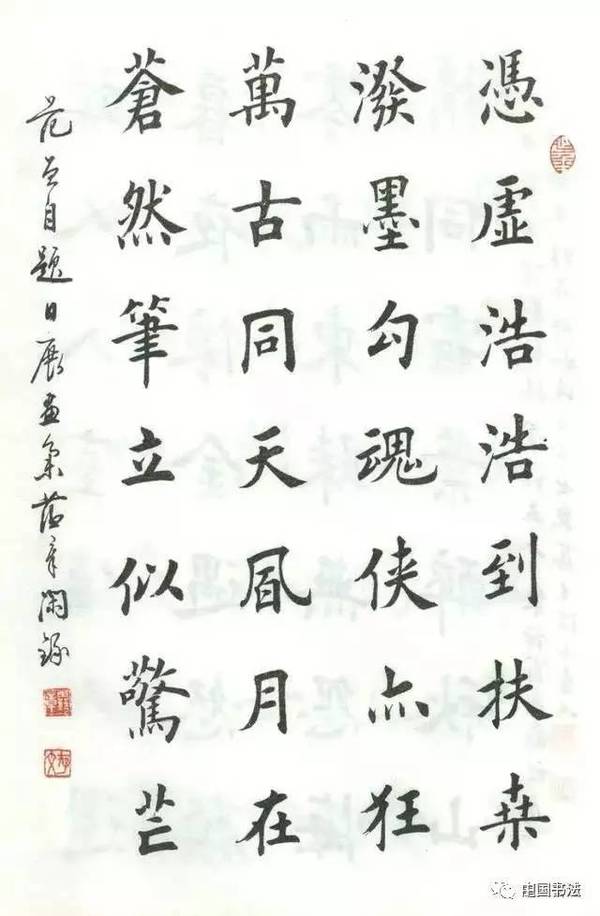 憑虛浩浩到扶桒
潑墨勾魂侠亦狂
萬古同天風月在
蒼然筆立似驚芒
范曾自題日展畫集
中国书法